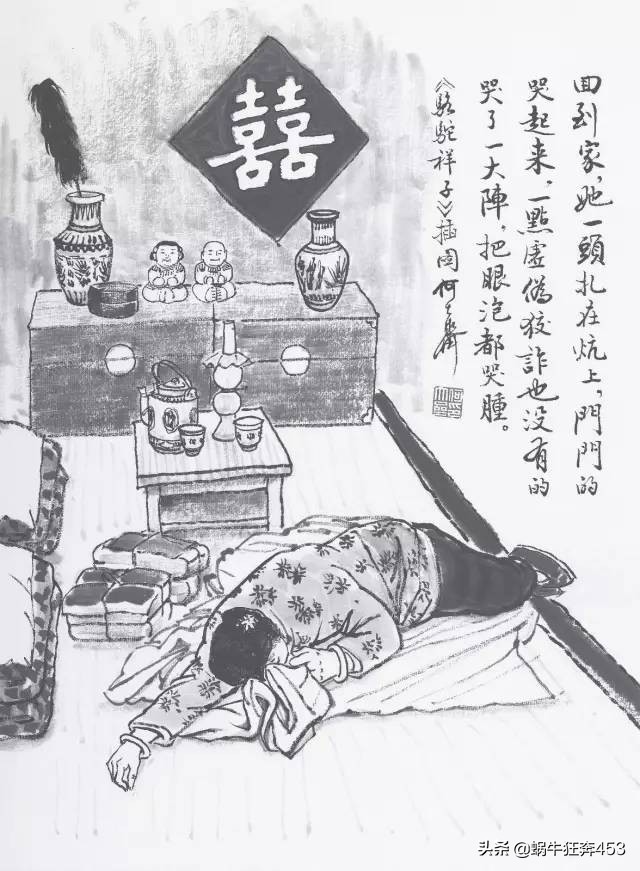 囍
回到家，她一頭扎在炕上，門門的
哭起来，一點虚偽狡詐也没有的
哭了一大陣，把眼泡都哭腫。
《駱駝祥子》插图
头条 @蜗牛狂奔453